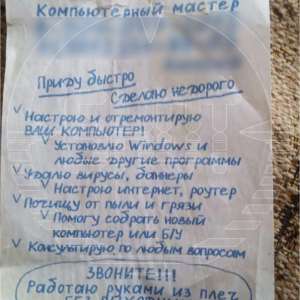 Компьютерный мастер
Приду быстро
Сделаю недорого
Настрою и отремонтирую
ВАШ КОМПЬЮТЕР!
Установлю Windows и
любые другие программы
Удалю вирусы, баннеры
Настрою интернет, роутер
Почищу от пыли и грязи
Помогу собрать новый
компьютер или Б/У
Консультирую по любым вопросам
ЗВОНИТЕ!!!
Работаю руками из плеч
БЕЗ